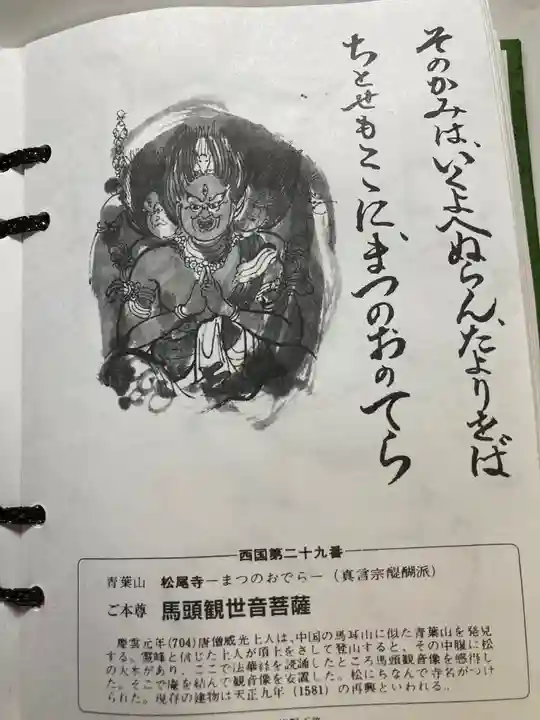 そのかみは、いくよへぬらん、たよりをば
ちとせもここに、まつのおのてら
西国第二十九番
青葉山 松尾寺ーまつのおでらー(真言宗醍醐派)
ご本尊 馬頭観世音菩薩
慶雲元年(704)唐僧威光上人は、中国の馬耳山に似た青葉山を発見
する。霊峰と信じた上人が頂上をさして登山すると、その中腹に松
の大木があり、ここで法華経を読誦したところ馬頭観音像を感得し
た。そこで庵を結んで観音像を安置した。松にちなんで寺名がつけ
られた。現存の建物は天正九年(1581)の再興といわれる。